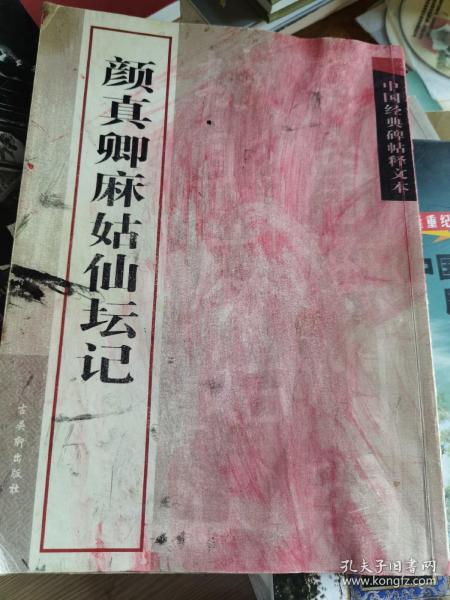 颜真卿麻姑仙坛记
中国经典碑帖释文本
古吴轩出版社
重纪
中国
孔夫子旧书网
www.kongfz.com